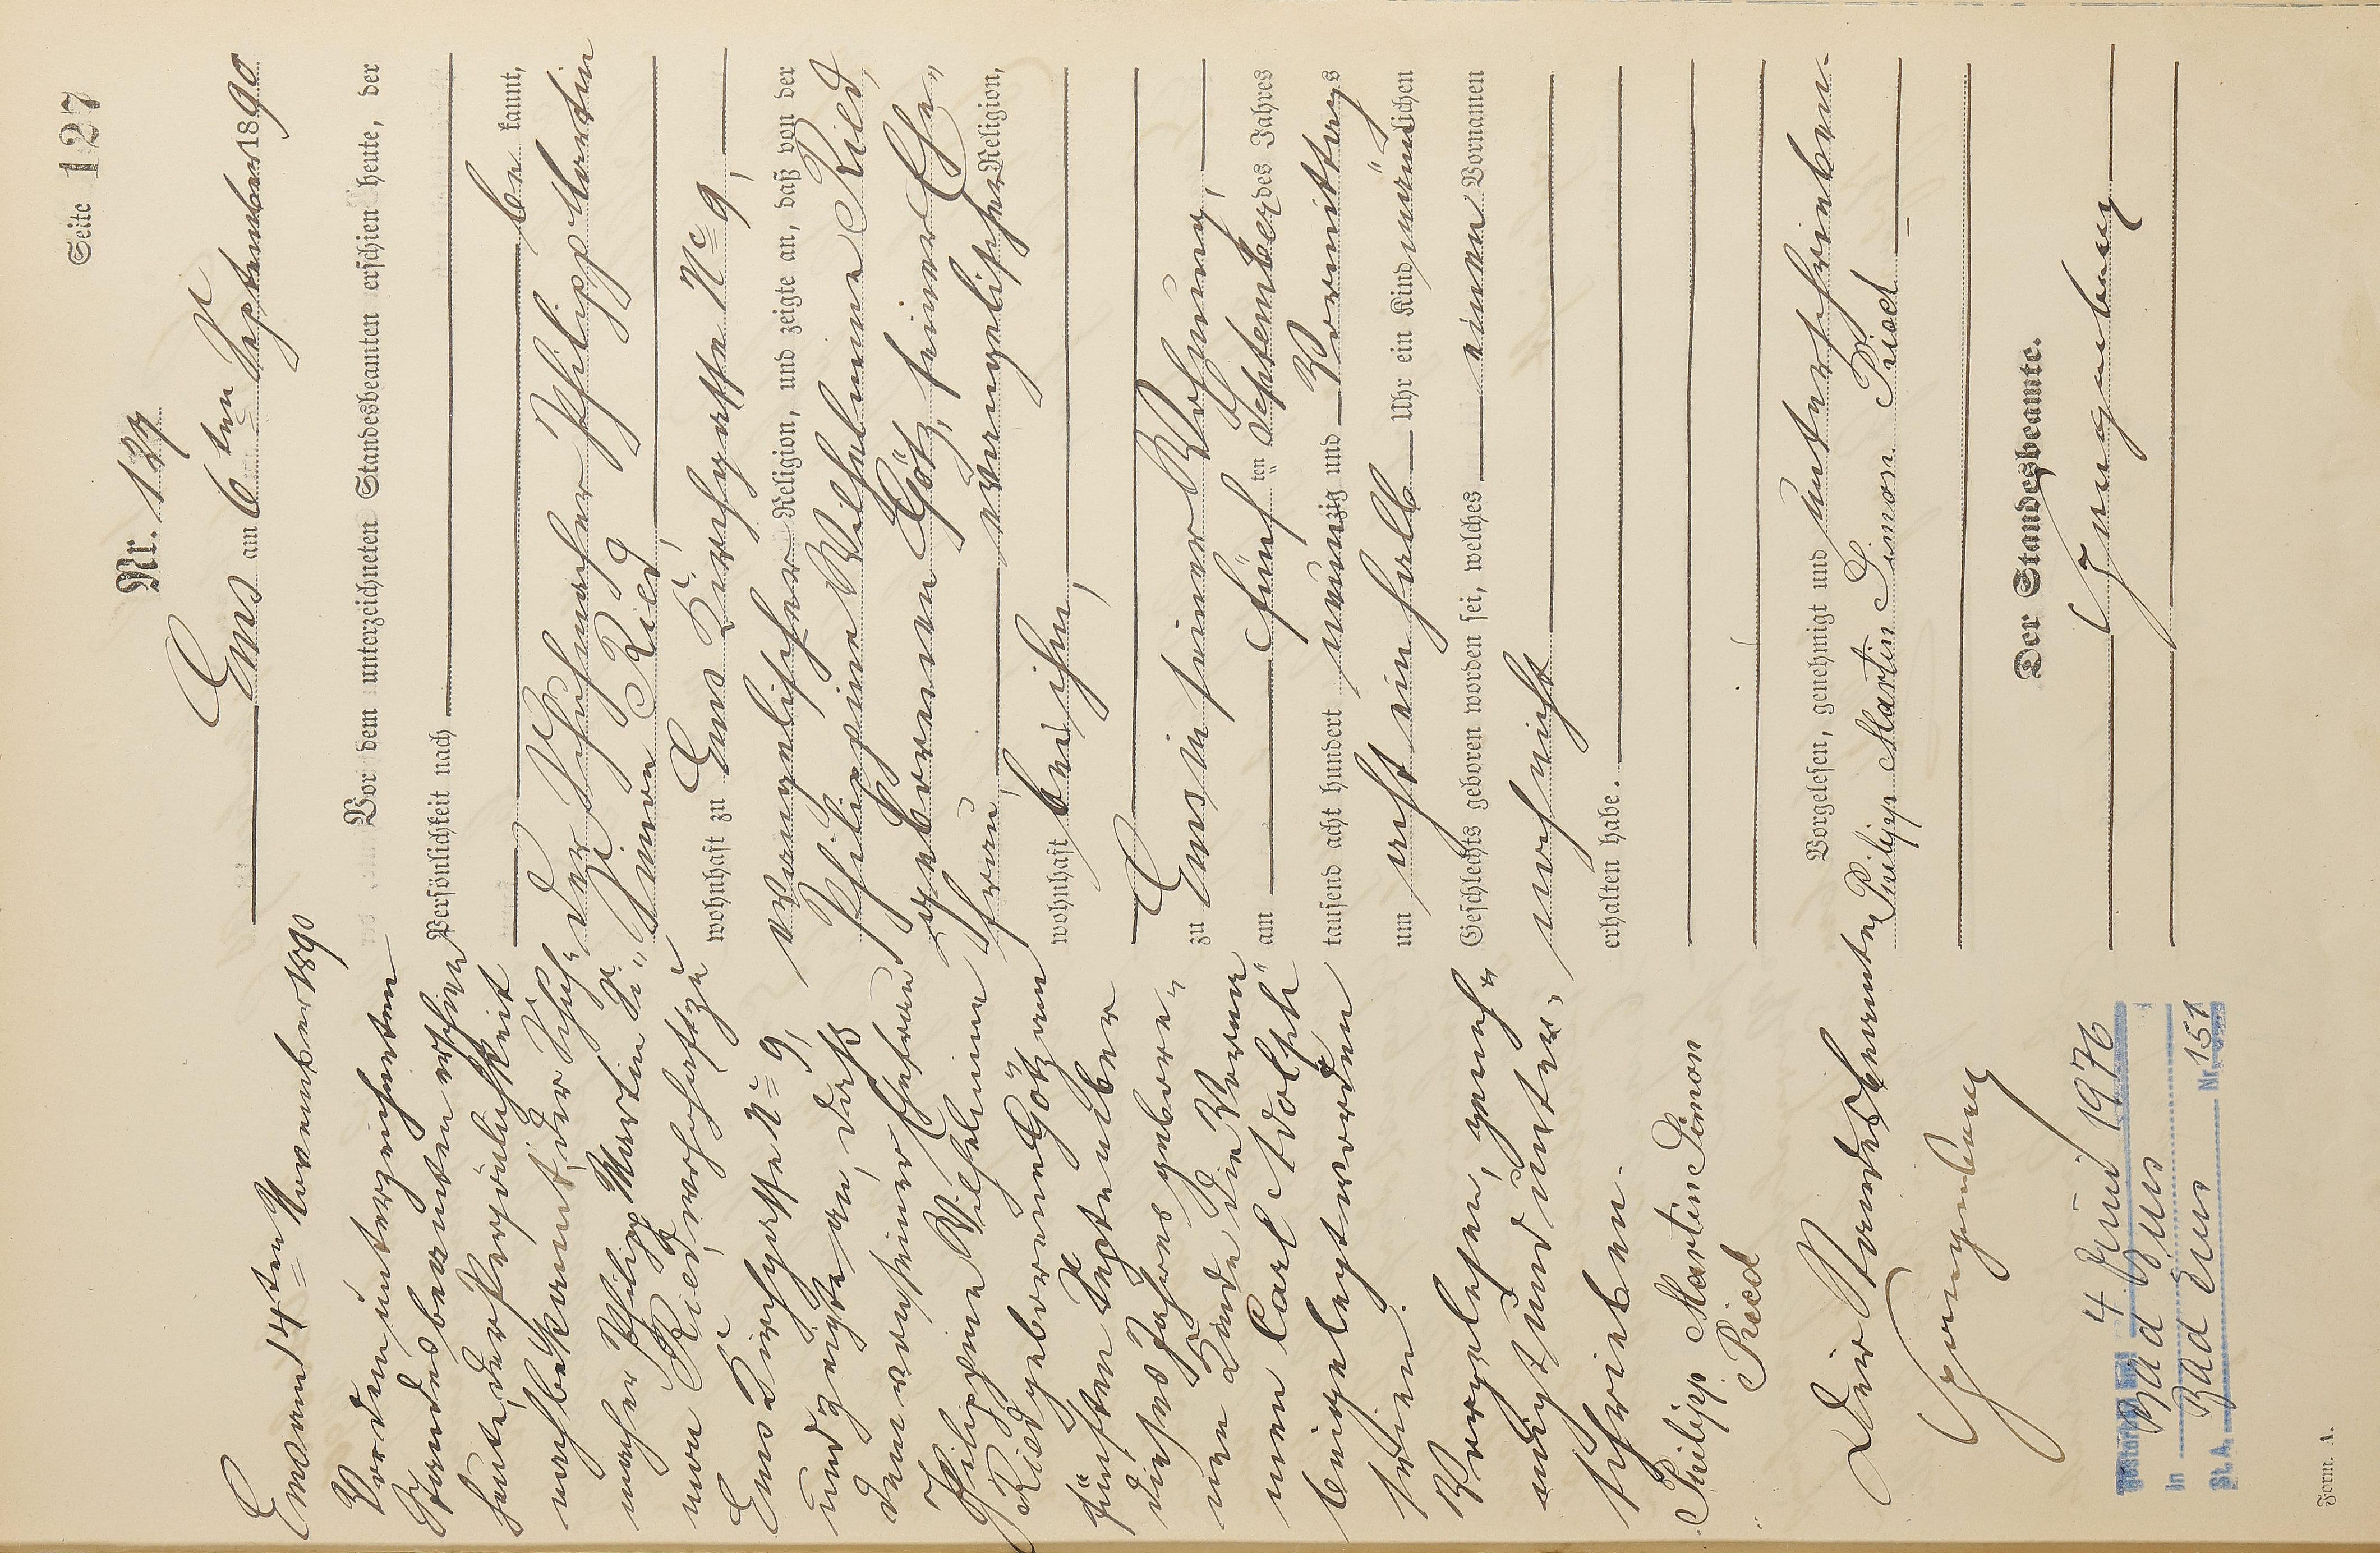 Seite 127
Nr. 127
Ems am 6ten September 1890
Vor dem unterzeichneten Standesbeamten erschien heute, der
Persönlichkeit nach
be kannt,
der Schuhmacher Philipp Martin
Simon Ried,
wohnhaft zu Ems Kirchgasse No 9,
evangelischer Religion, und zeigte an, daß von der
Philippine Wilhelmine Ried,
geborenen Götz, seiner Ehe-
frau, evangelischer Religion,
wohnhaft bei ihm,
zu Ems in seiner Wohnung,
am fünf ten September des Jahres
tausend acht hundert neunzig und Vormittags
um acht ein halb Uhr ein Kind männlichen
Geschlechts geboren worden sei, welches einen Vornamen
noch nicht
erhalten habe.
Vorgelesen, genehmigt und unterschrieben.
Philipp Martin Simon Ried
Der Standesbeamte.
Ems am 14ten November 1890
Vor dem unterzeichneten
Standesbeamten erschien
heute, der Persönlichkeit
nach bekannt, der Schuh-
macher Philipp Martin Si-
mon Ried, wohnhaft zu
Ems Kirchgasse No 9,
und zeigte an, daß
dem von seiner Ehefrau
Philippine Wilhelmine
Ried geborene Götz am
fünften September
dieses Jahres gebore-
nen Kinde die Vorna-
men Carl Adolph
beigelegt worden
seien.
Vorgelesen, geneh-
migt und unter-
schrieben.
Philipp Martin Simon
Ried
Der Standesbeamte
Gestorben am 4. Juni 1976
in Bad Ems
St.A. Bad Ems Nr. 151
Form. A.